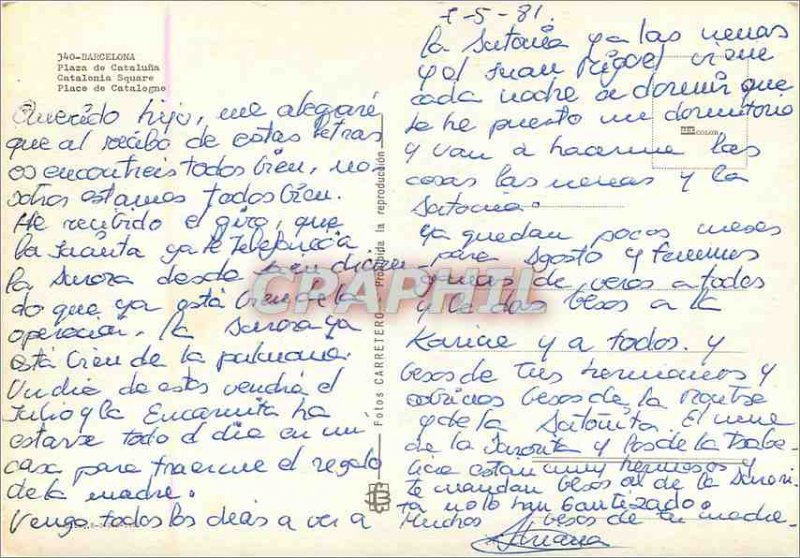 340-BARCELONA
Plaza de Cataluña
Catalonia Square
Place de Catalogne
Querido hijo, me alegaré
que al recibo de estas letras
os encontreis todos bien, no-
sotros estamos todos bien.
He recibido el giro, que
la Juanita ya te telefonearia.
la Surora desde dicien
do que ya está bien de la
operacion. la Surora ya
está bien de la pulmonia.
Un dia de estos vendrá el
Julio y la Encarnita ha
estarse todo el dia en mi
casa para traerme el regalo
de la madre.
Vengo todos los deias a ver a
Fotos CARRETERO Prohibida la reproducción
CPAPHIL
COLOR
7-5-81.
la Satonia ya las nenas
y el Juan Miguel viene
cada noche a dormir que
le he puesto un dormitorio
y van a hacerme las
cosas las nenas y la
Satonia.
Ya quedan pocos meses
para Agosto y tenemos
ganas de veros a todos
y le das besos a la
Karine y a todos. y
besos de tus hermanos y
besos de la Montse
y de la Satoñita. El nene
de la y los de la Isabe-
estan muy hermosos y
te mandan besos al de la Surori-
ta no lo han bautizado.
Muchos besos de tu madre